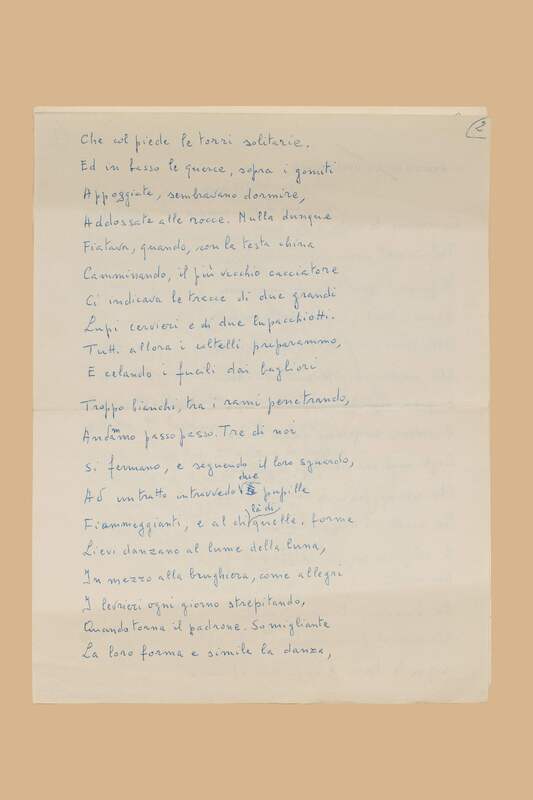 2
Che col piede le torri solitarie.
Ed in basso le querce, sopra i gomiti
Appoggiate, sembravano dormire,
Addossate alle rocce. Nulla dunque
Fiatava, quando, con la testa china
Camminando, il più vecchio cacciatore
Ci indicava le tracce di due grandi
Lupi cervieri e di due lupacchiotti.
Tutti allora i coltelli preparammo,
E celando i fucili dai bagliori
Troppo bianchi, tra i rami penetrando,
Andammo passo passo. Tre di noi
Si fermano, e seguendo il loro sguardo,
Ad un tratto intravvedo due pupille
Fiammeggianti, e al di là di quelle, forme
Lievi danzano al lume della luna,
In mezzo alla brughiera, come allegri
I levrieri ogni giorno strepitando,
Quando torna il padrone. Somigliante
La loro forma e simile la danza,